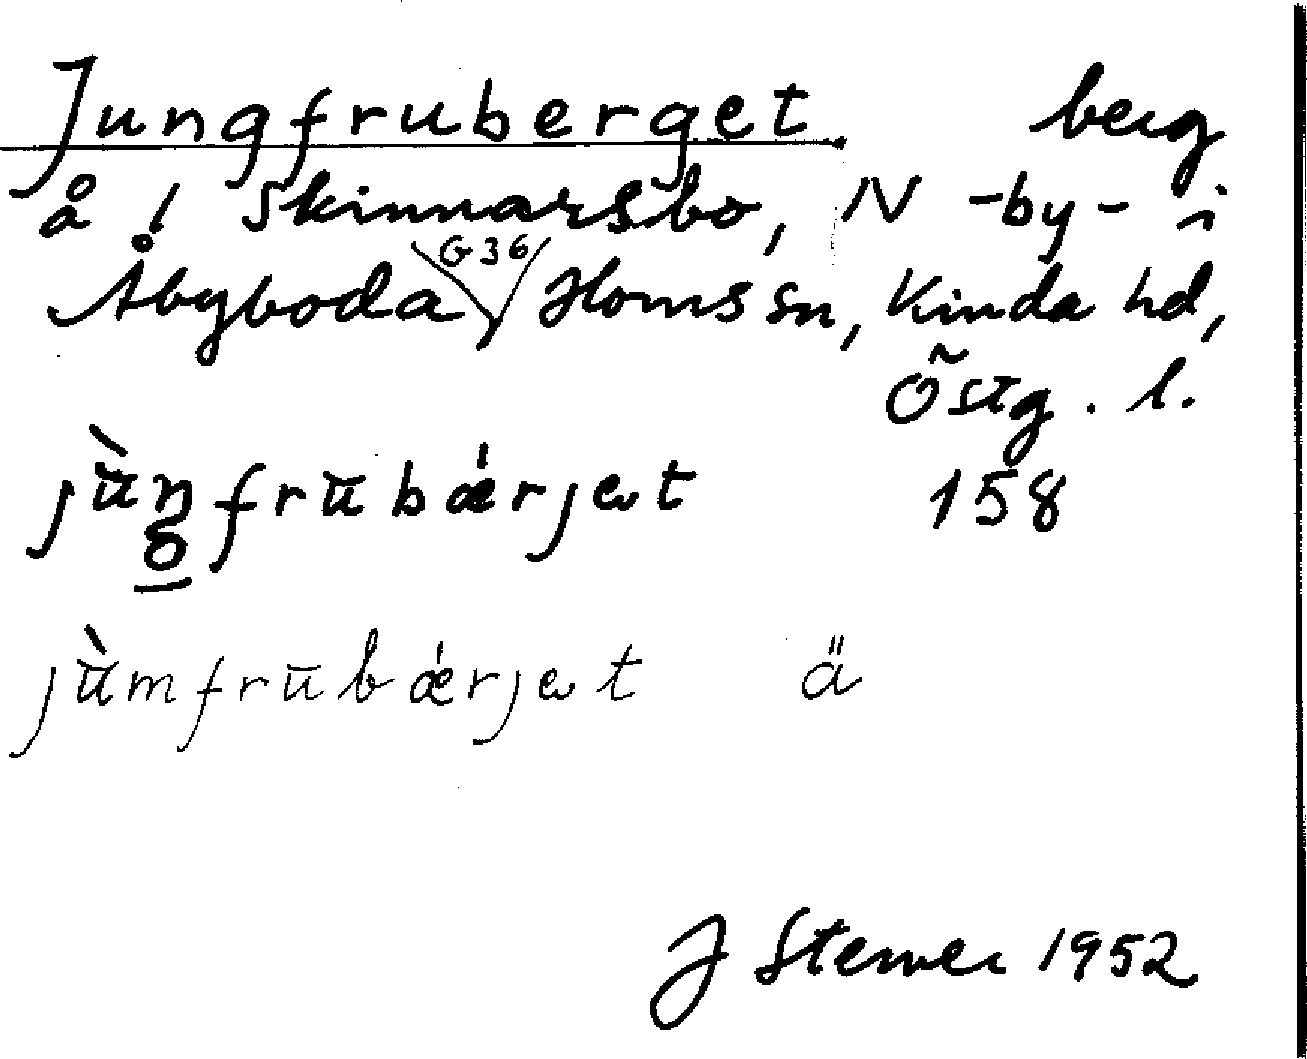 Jungfruberget berg
å 1/ Skinnarsbo, N -by- i
Åbyboda G36 Horns sn, Kinda hd,
Östg. l.
jùn̥frūbǽrjet 158
jùmfrūbǽrjet ä
J Sterner 1952